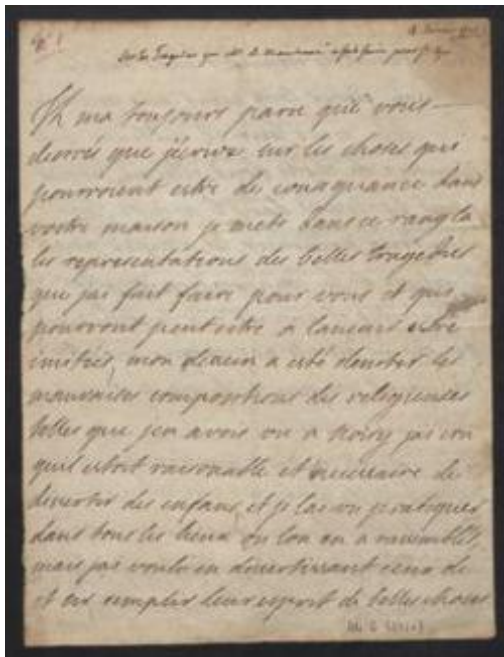 Sur les Tragedies que Me de Maintenon a fait faire pour St Cyr
Il ma tousjours paru que vous
desirés que j'ecrive sur les choses qui
pourroient estre de consequance dans
vostre maison je mets dans ce rang la
les representations des belles tragedies
que jay fait faire pour vous et qui
pourront peutestre a lavenir estre
imitées, mon dessein a esté deviter les
mauvaises compositions des religieuses
telles que jen avois vu a Noisy jay cru
quil estoit raisonable et necessaire de
divertir des enfans et je lay vu pratiquer
dans tous les lieux ou lon en a rassemblés
mais jay voulu en divertissant ceux de
et cyr remplir leur esprit de belles choses